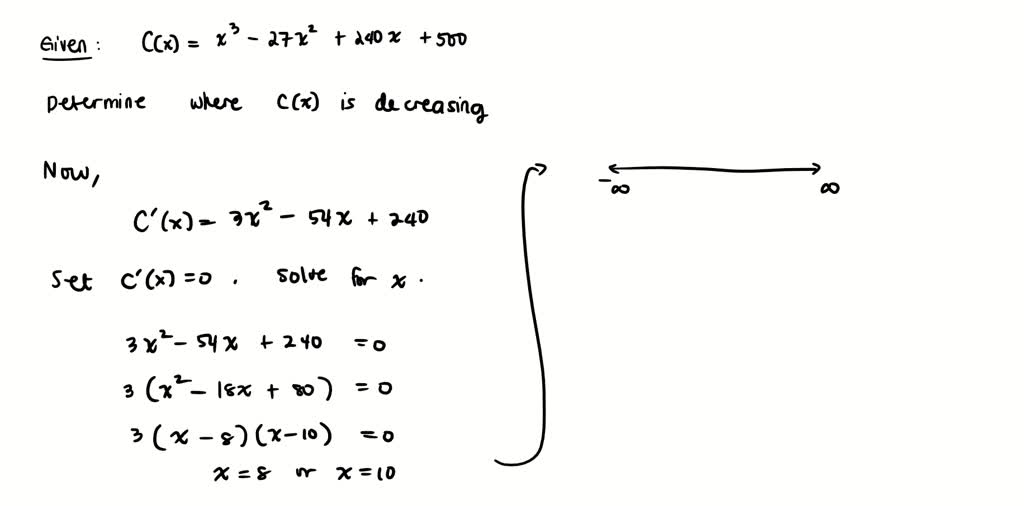 Given : C(x) = x³ - 27x² + 240x + 500
Determine where C(x) is decreasing
Now,
C'(x) = 3x² - 54x + 240
Set C'(x) = 0 . Solve for x .
3x² - 54x + 240 = 0
3 (x² - 18x + 80) = 0
3 (x - 8)(x - 10) = 0
x = 8 or x = 10
-∞ ∞